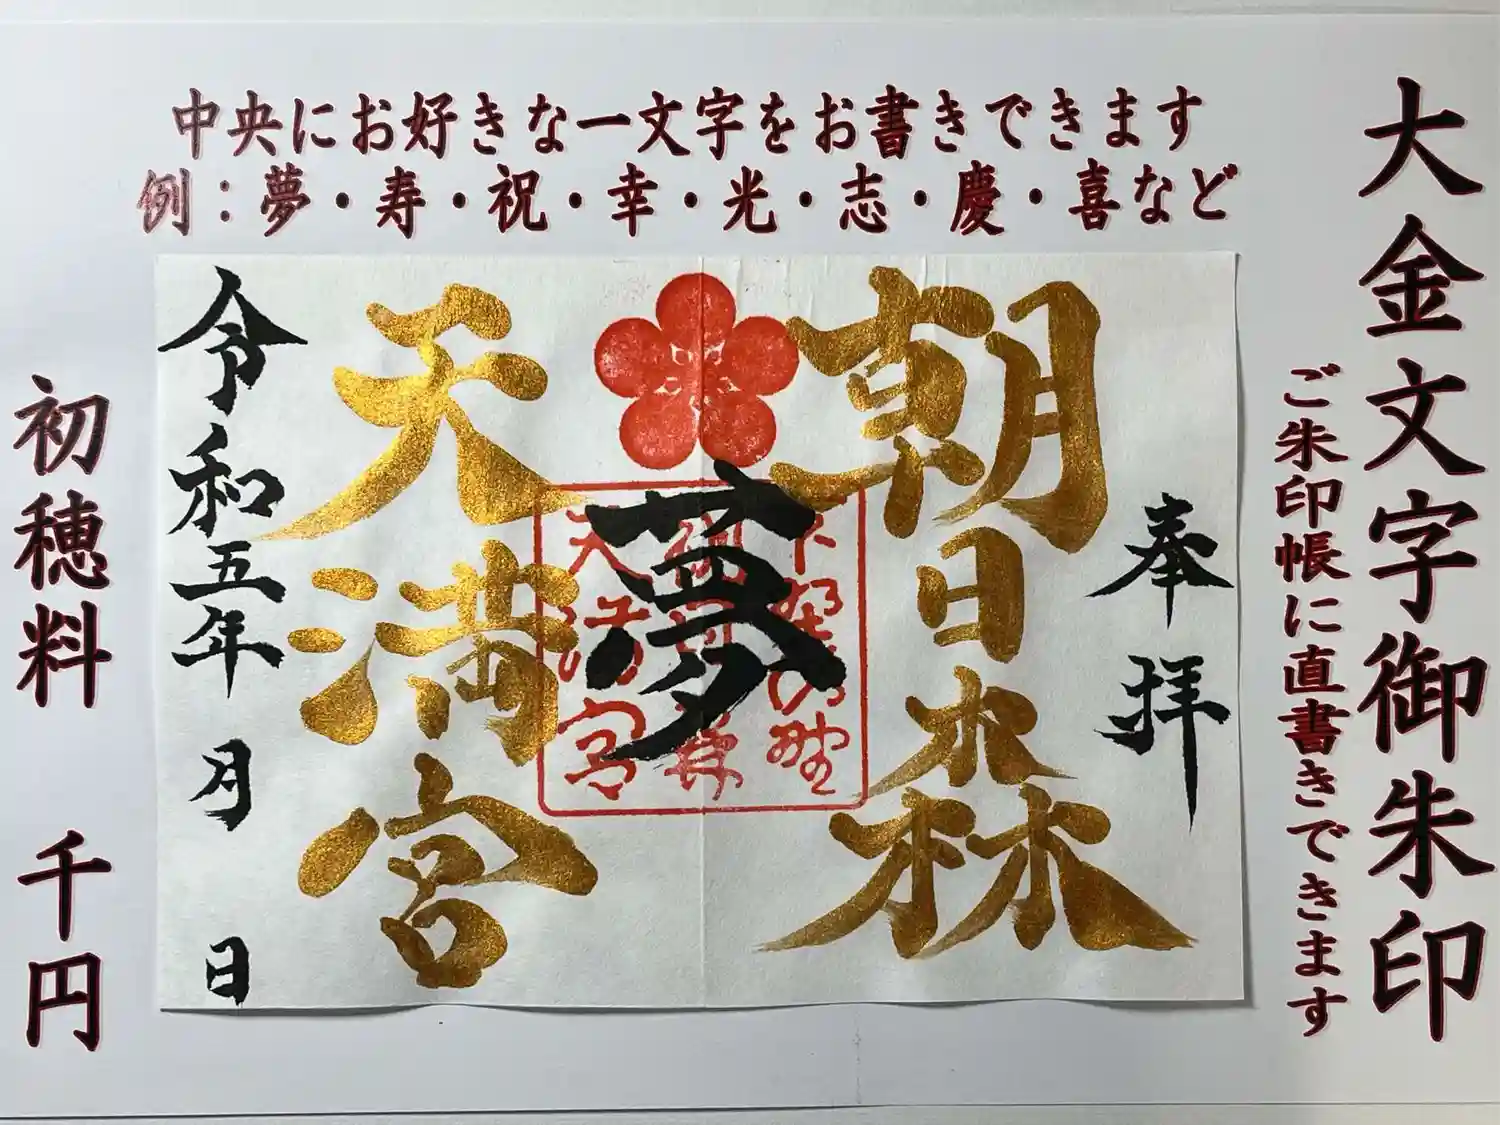 大金文字御朱印
ご朱印帳に直書きできます
中央にお好きな一文字をお書きできます
例：夢・寿・祝・幸・光・志・慶・喜など
奉拝
朝日森
夢
天満宮
令和五年 月 日
初穂料 千円